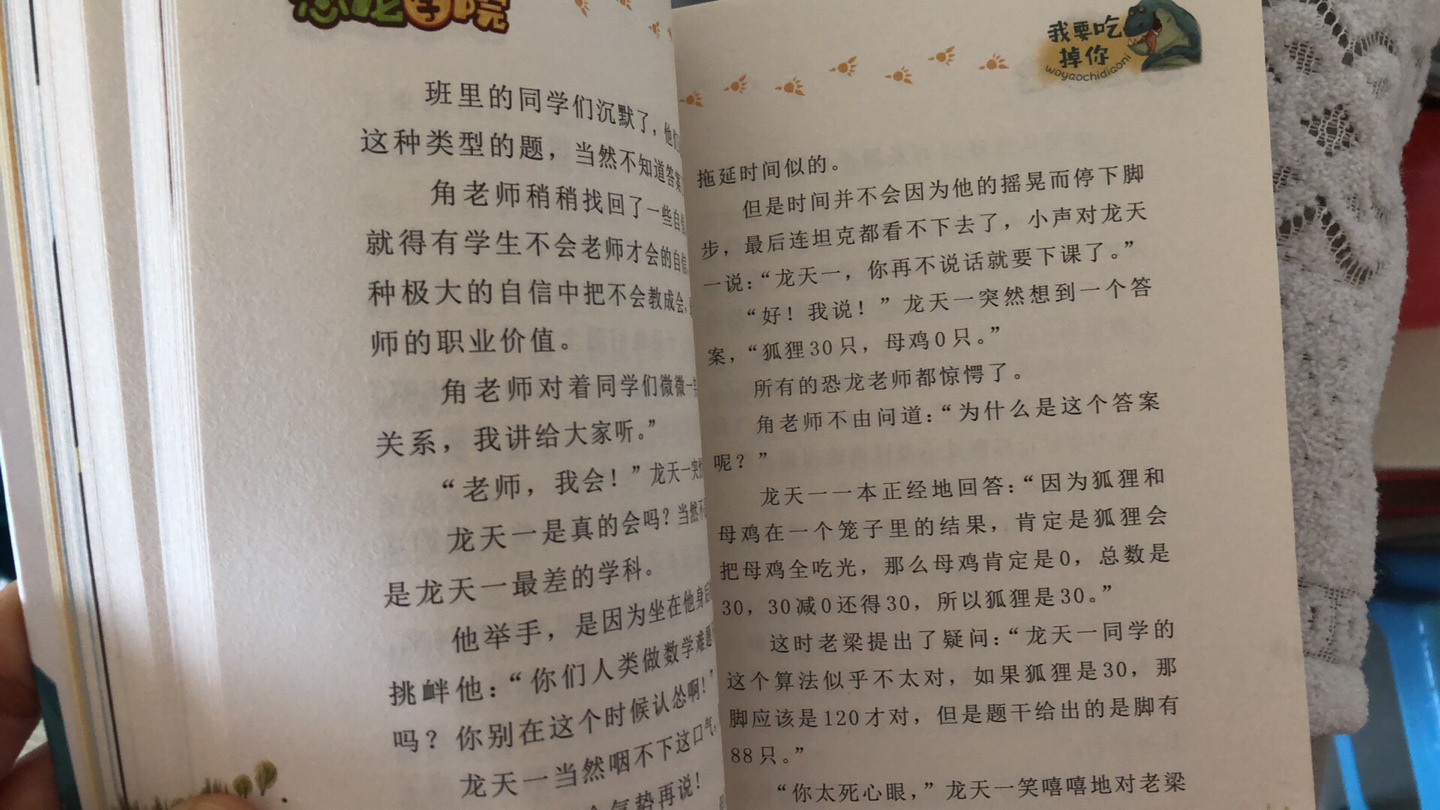 恐龙学院
班里的同学们沉默了，他们
这种类型的题，当然不知道答案
角老师稍稍找回了一些自信
就得有学生不会老师才会的自信
种极大的自信中把不会教成会，
师的职业价值。
角老师对着同学们微微一
关系，我讲给大家听。”
“老师，我会！”龙天一突
龙天一是真的会吗？当然不
是龙天一最差的学科。
他举手，是因为坐在他身后
挑衅他：“你们人类做数学难题
吗？你别在这个时候认怂啊！”
龙天一当然咽不下这口气，
气势再说！
我要吃
掉你
woyaochidiaoni
拖延时间似的。
但是时间并不会因为他的摇晃而停下脚
步，最后连坦克都看不下去了，小声对龙天
一说：“龙天一，你再不说话就要下课了。”
“好！我说！”龙天一突然想到一个答
案，“狐狸30只，母鸡0只。”
所有的恐龙老师都惊愕了。
角老师不由问道：“为什么是这个答案
呢？”
龙天一一本正经地回答：“因为狐狸和
母鸡在一个笼子里的结果，肯定是狐狸会
把母鸡全吃光，那么母鸡肯定是0，总数是
30，30减0还得30，所以狐狸是30。”
这时老梁提出了疑问：“龙天一同学的
这个算法似乎不太对，如果狐狸是30，那
脚应该是120才对，但是题干给出的是脚有
88只。”
“你太死心眼，”龙天一笑嘻嘻地对老梁